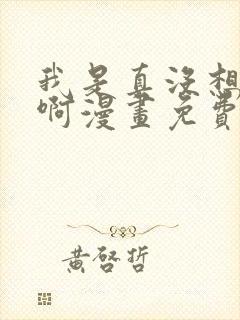 我是真没想
啊漫画免费
黄启哲